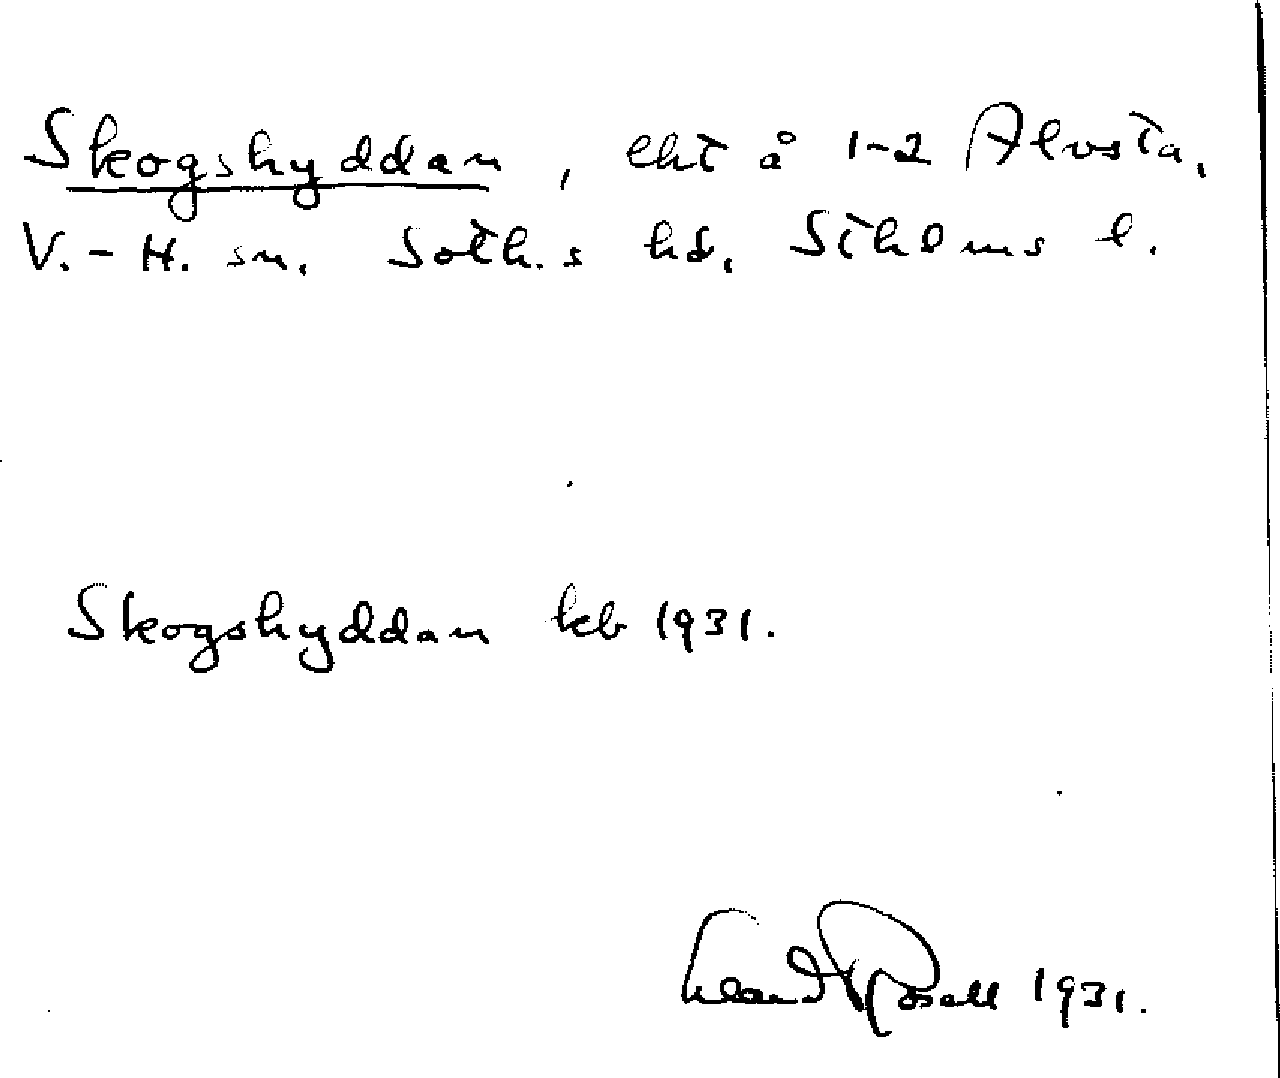 Skogshyddan, lht å 1-2 Alvsta,
V.-H. sn. Soth.s hd. Sthlms l.
Skogshyddan kb 1931.
Rosell 1931.